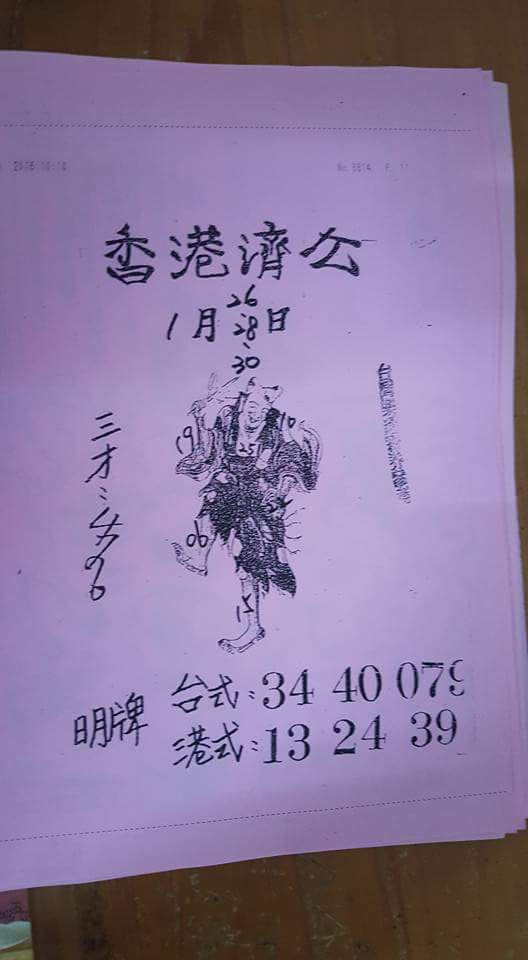 2016 10:18 No 5814 P. 11
香港濟公
1月26、28、30日
19
10
25
06
15
三才:4796
明牌
台式:34 40 079
港式:13 24 39